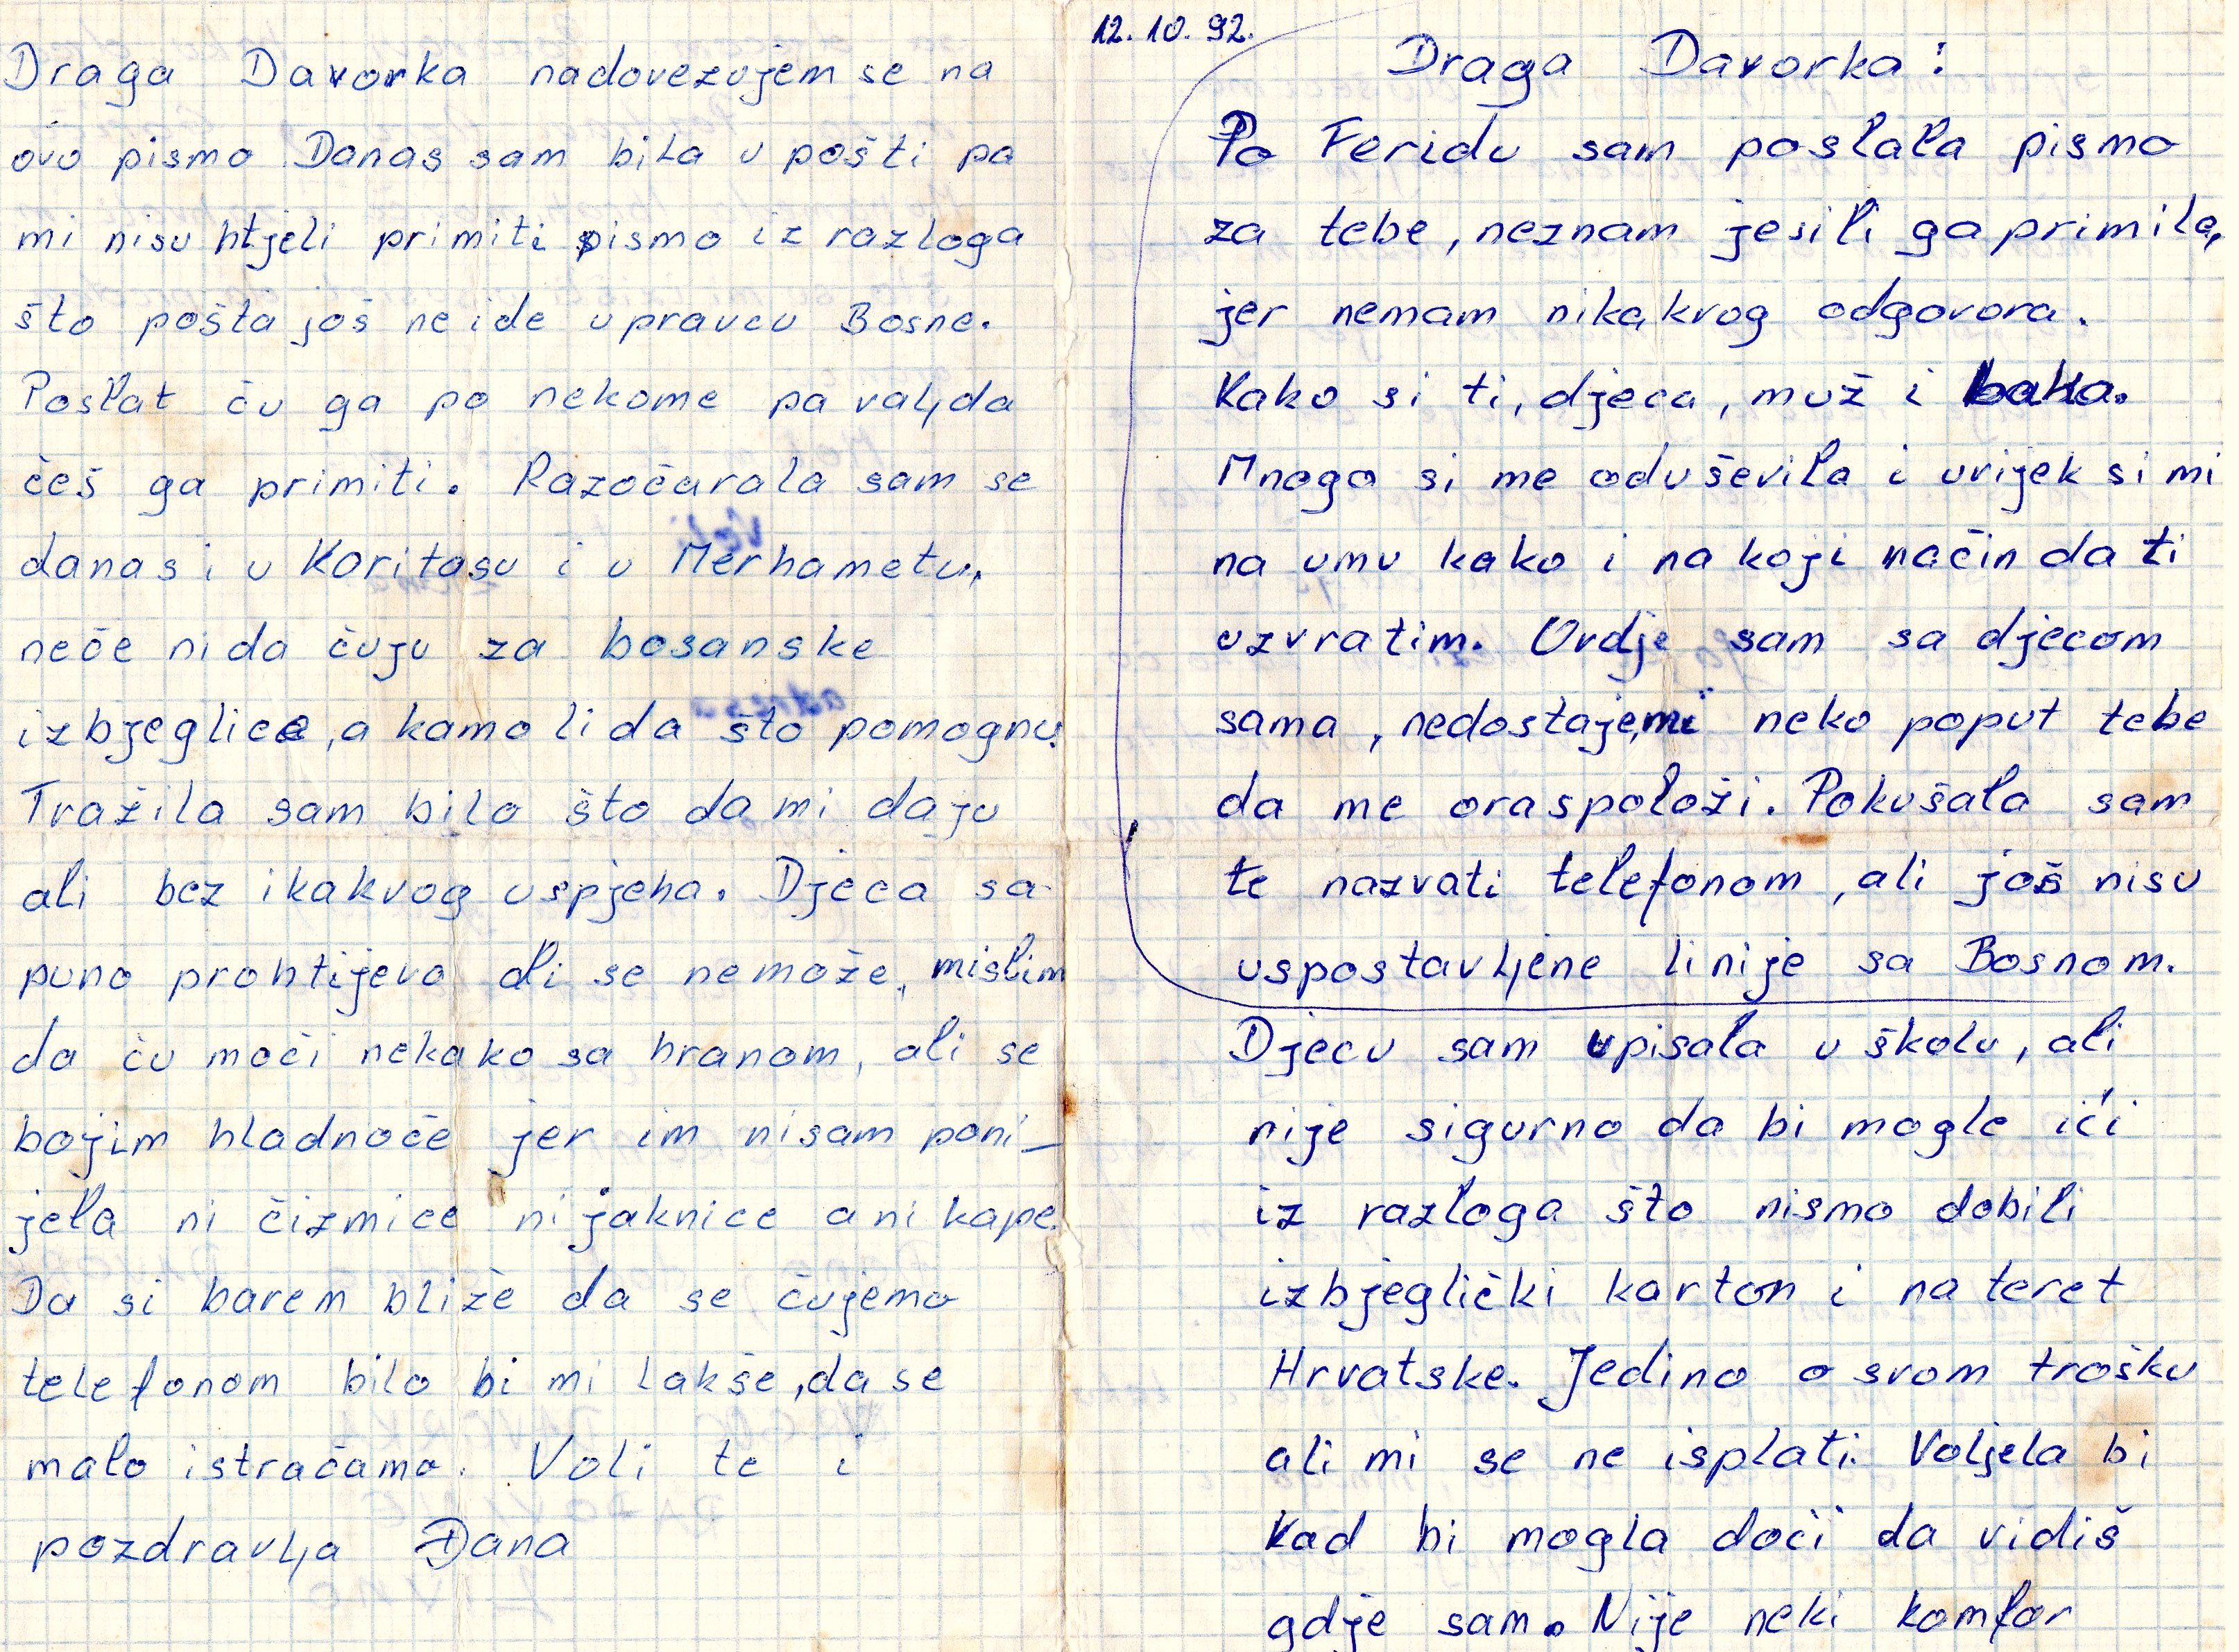 Draga Davorka nadovezujem se na
ovo pismo Danas sam bila u pošti pa
mi nisu htjeli primiti pismo iz razloga
što pošta još ne ide u pravcu Bosne.
Poslat ću ga po nekome pa valjda
češ ga primiti. Razočarala sam se
danas i u Koritasu i u Merhametu,
neče ni da čuju za bosanske
izbjeglice, a kamo li da što pomognu.
Tražila sam bilo što da mi daju
ali bez ikakvog uspjeha. Djeca sa
puno prohtijeva ali se nemože, mislim
da ču moči nekako sa hranom, ali se
bojim hladnoče jer im nisam poni-
jela ni čizmice ni jaknice a ni kape.
Da si barem bliže da se čujemo
telefonom bilo bi mi lakše, da se
malo istračamo. Voli te i
pozdravlja Đana
12. 10. 92.
Draga Davorka!
Po Feridu sam poslala pismo
za tebe, neznam jesili ga primila,
jer nemam nikakvog odgovora.
Kako si ti, djeca, muž i baka.
Mnogo si me oduševila i uvijek si mi
na umu kako i na koji način da ti
uzvratim. Ovdje sam sa djecom
sama, nedostaje mi neko poput tebe
da me oraspoloži. Pokušala sam
te nazvati telefonom, ali još nisu
uspostavljene linije sa Bosnom.
Djecu sam upisala u školu, ali
nije sigurno da bi mogle ići
iz razloga što nismo dobili
izbjeglički karton i na teret
Hrvatske. Jedino o svom trošku
ali mi se ne isplati. Voljela bi
kad bi mogla doči da vidiš
gdje sam. Nije neki komfor